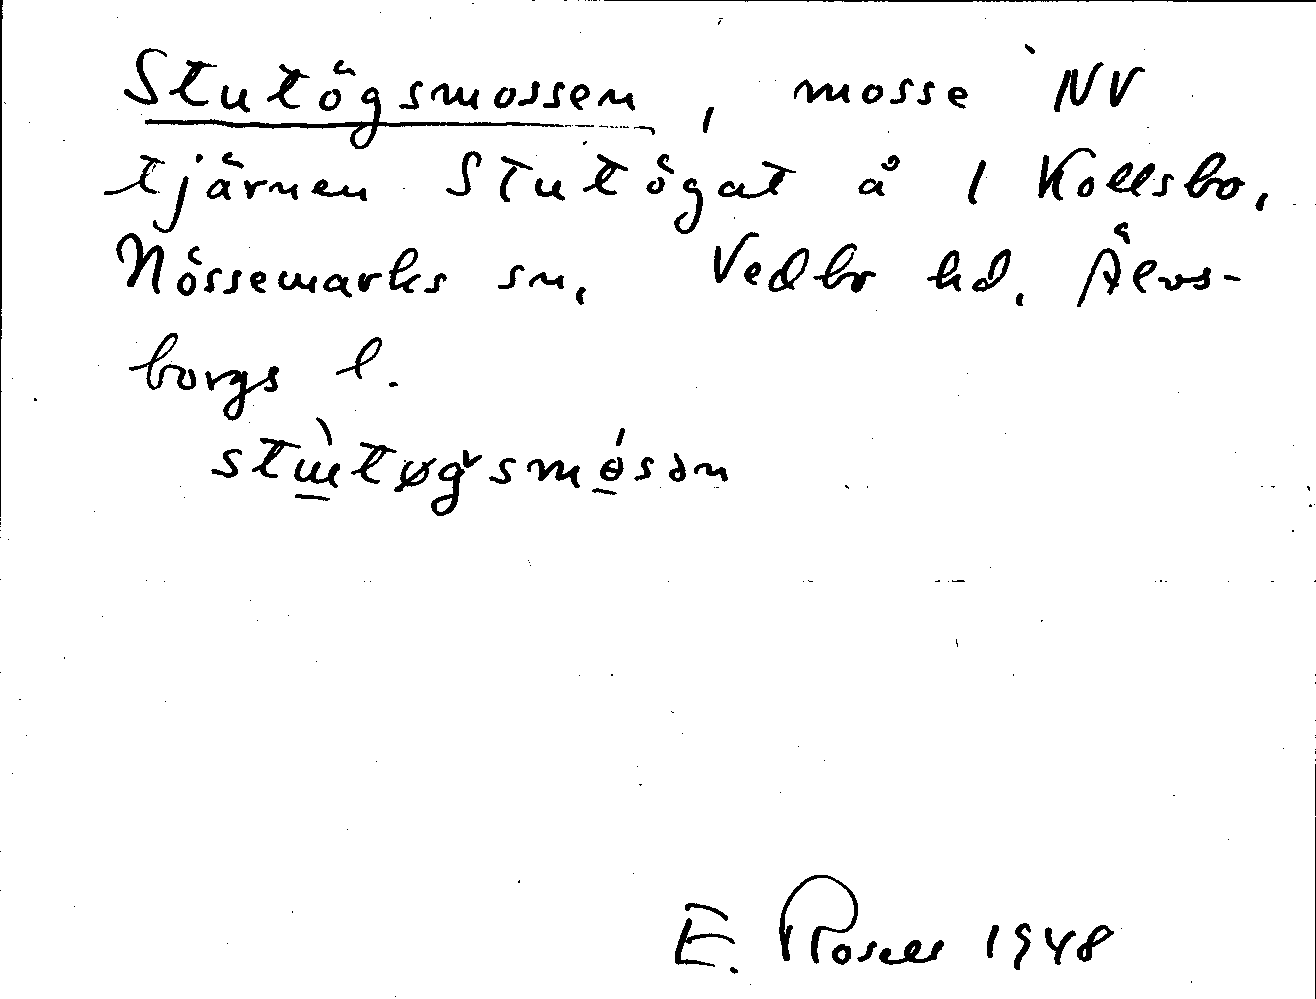 Stutögsmossen, mosse NV
tjärnen Stutögat å 1 Kollsbo,
Nössemarks sn, Vedbo hd, Älvs-
borgs l.
E. Rosell 1948